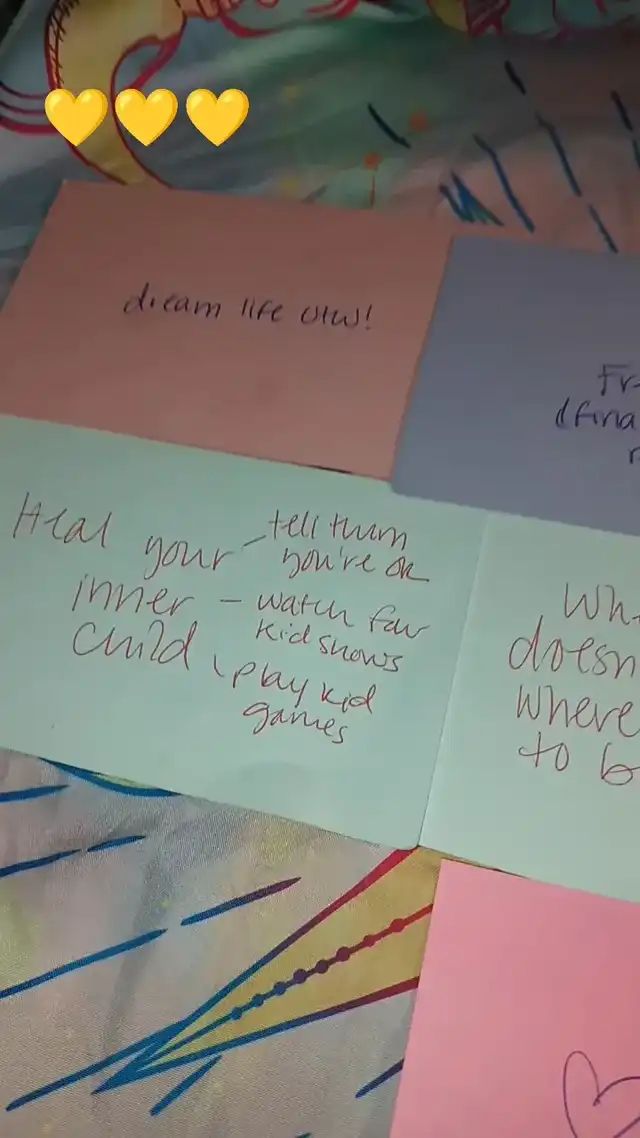 dream life otw!
Fr-
(fina
r
Heal your
inner
child
- tell them
you're ok
- watch fav
kid shows
\ play kid
games
Wh
doesn
where
to b